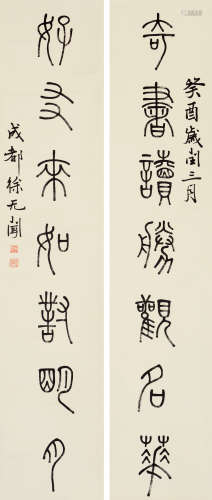 癸酉歲閏三月
奇書讀勝觀名華
好友來如對明月
成都徐无聞